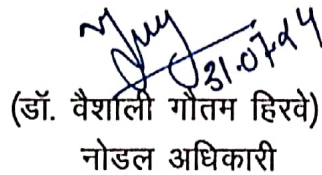 31.07.24
(डॉ. वैशाली गौतम हिरवे)
नोडल अधिकारी